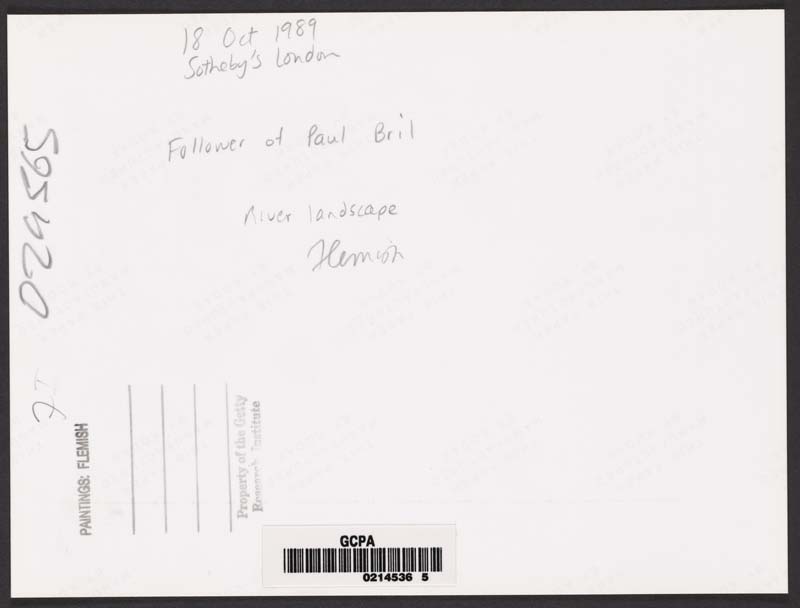 18 Oct 1989
Sotheby's London
Follower of Paul Bril
River landscape
Flemish
029565
PAINTINGS: FLEMISH
Property of the Getty
Research Institute
GCPA
0214536 5